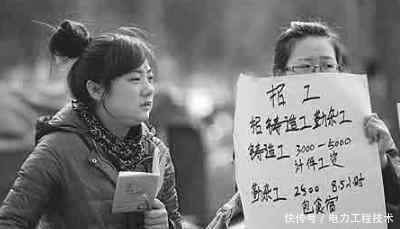 招工
招铸造工勤杂工
铸造工 3000—5000
计件工资
勤杂工 2500 8.5小时
包食宿
快传号 / 电力工程技术